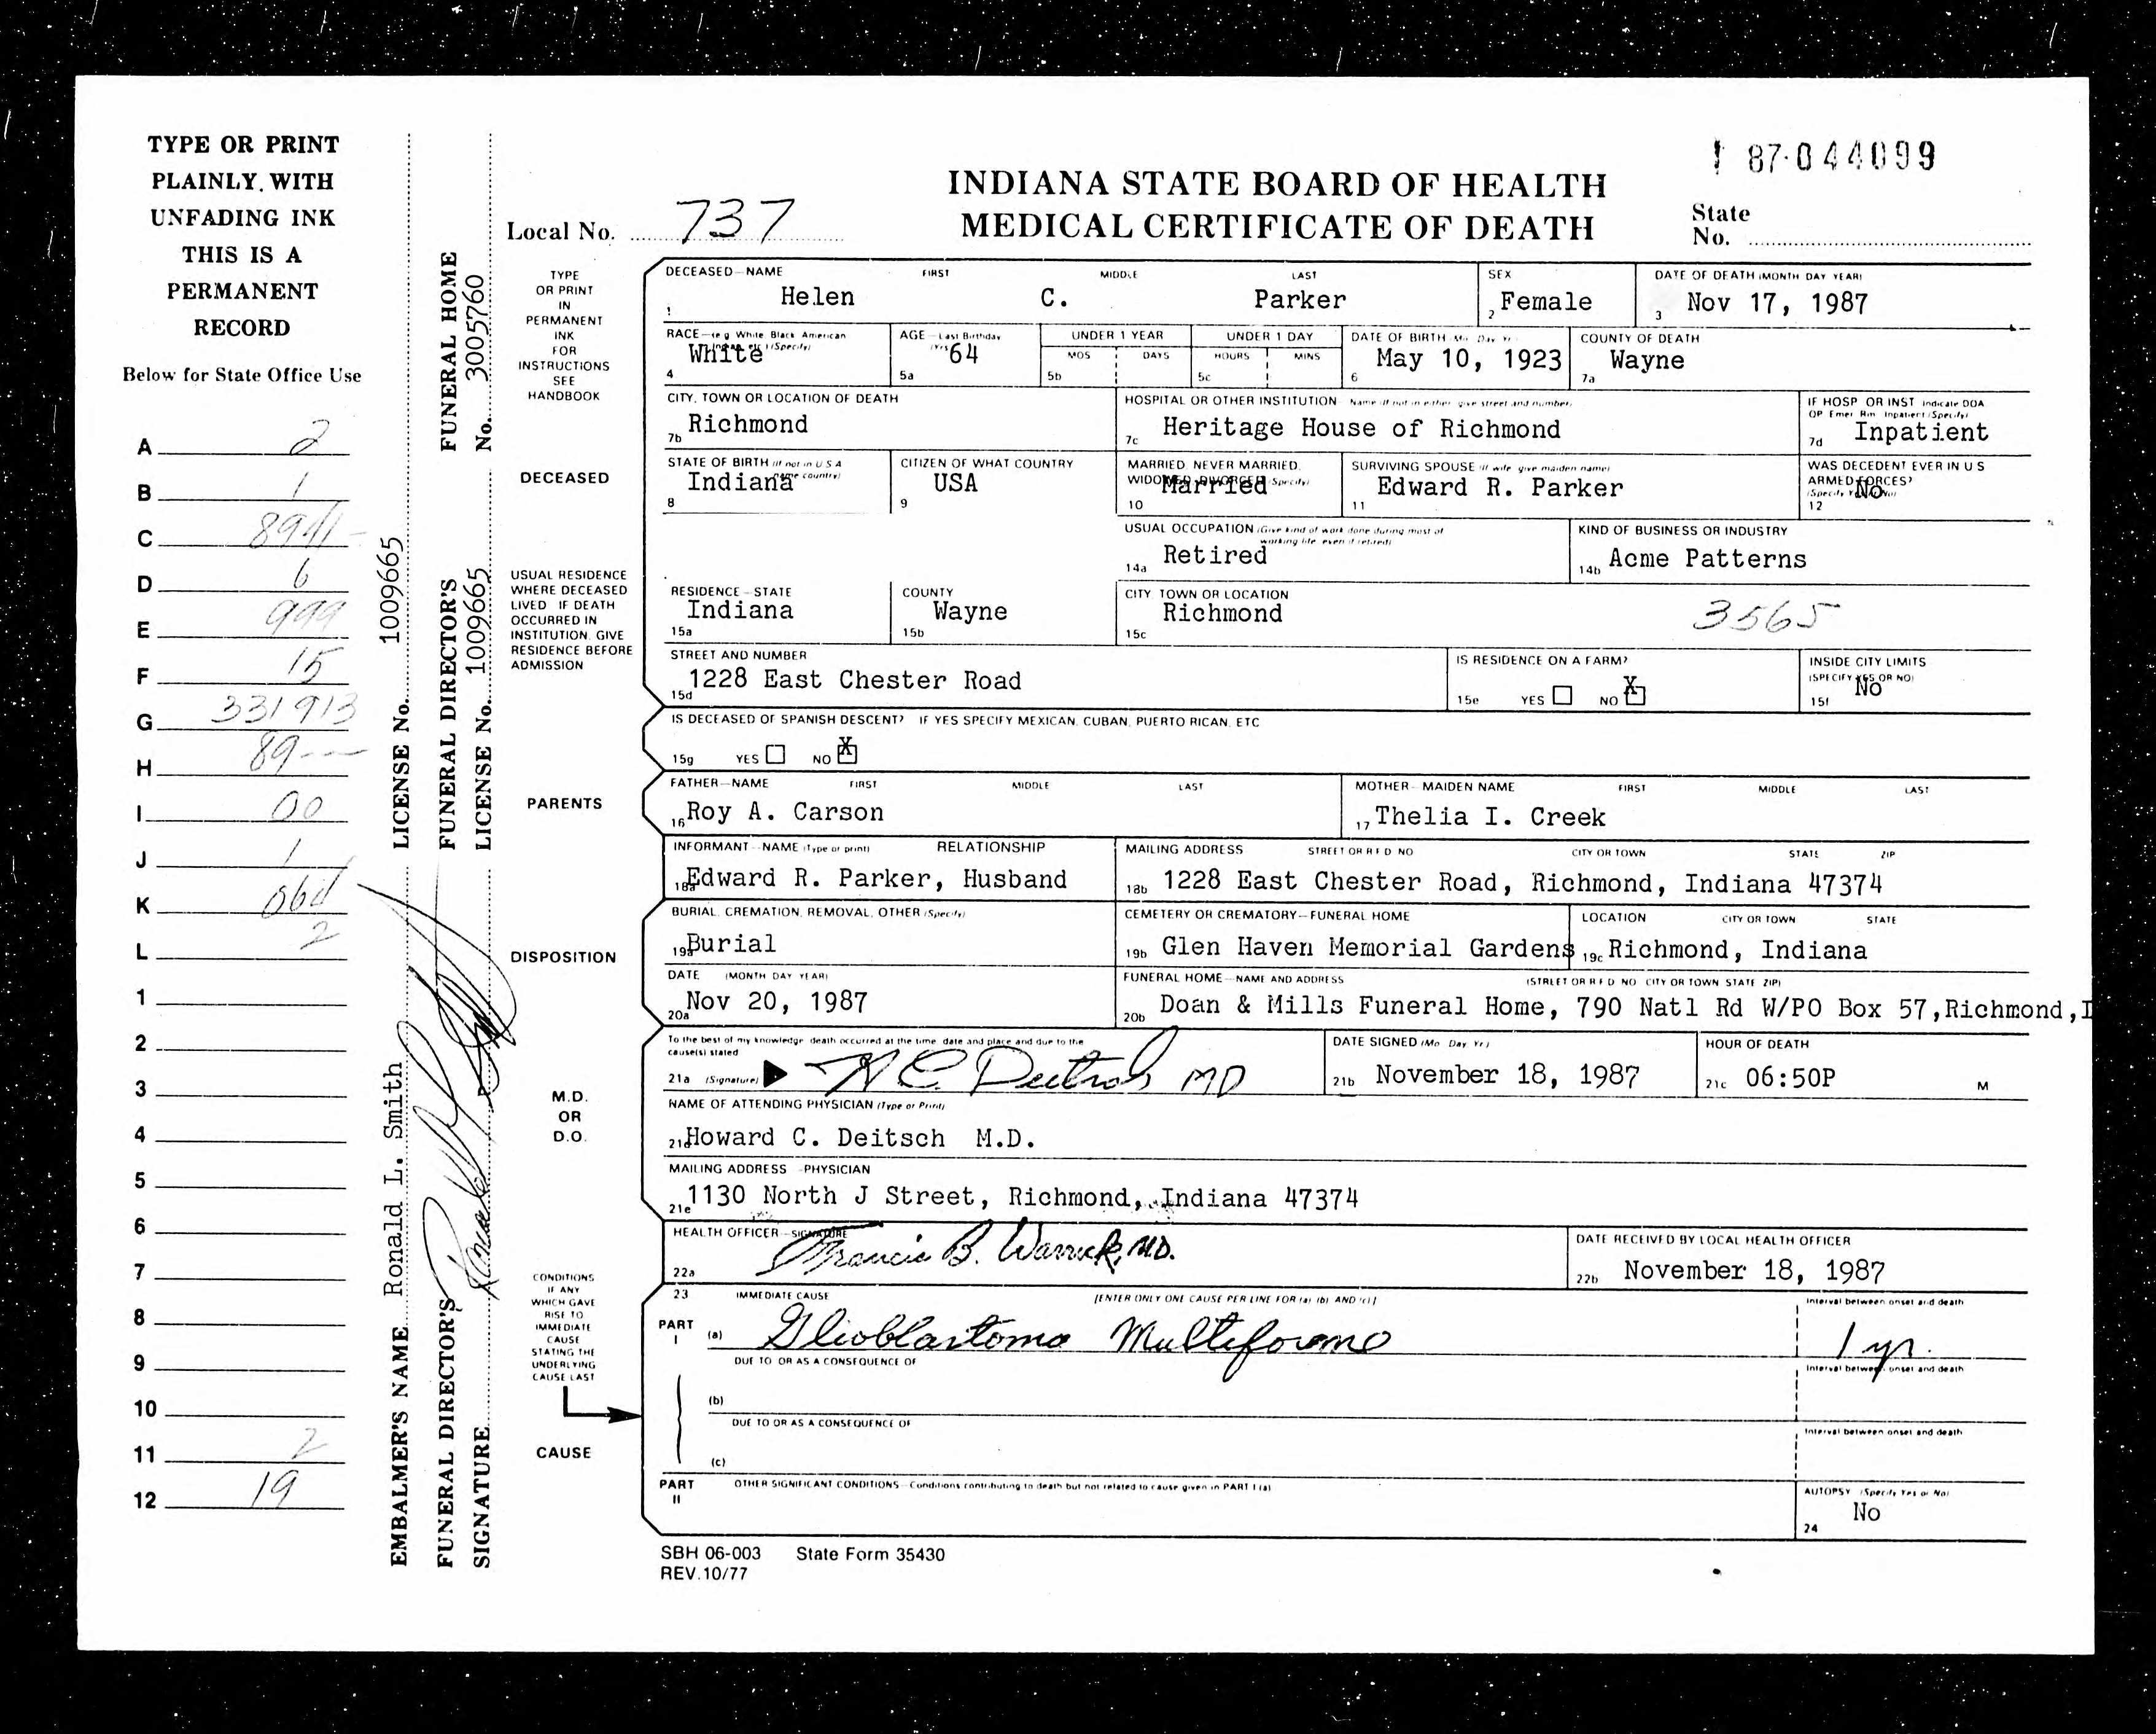 TYPE OR PRINT
PLAINLY, WITH
UNFADING INK
THIS IS A
PERMANENT
RECORD
Below for State Office Use
A 2
B 1
C 8941-
D 6
E 999
F 15
G 331913
H 89---
I 00
J 1
K
L 2
1
2
3
4
5
6
7
8
9
10
11 2
12 19
EMBALMER'S NAME Ronald L. Smith LICENSE No. 1009665
FUNERAL DIRECTOR'S SIGNATURE FUNERAL DIRECTOR'S LICENSE No. 1009665 FUNERAL HOME No. 3005760
! 87-044099
INDIANA STATE BOARD OF HEALTH
MEDICAL CERTIFICATE OF DEATH
Local No. 737
State
No.
TYPE
OR PRINT
IN
PERMANENT
INK
FOR
INSTRUCTIONS
SEE
HANDBOOK
DECEASED—NAME FIRST MIDDLE LAST SEX DATE OF DEATH (MONTH DAY YEAR)
1 Helen C. Parker 2 Female 3 Nov 17, 1987
RACE—(e.g. White, Black, American Indian, etc.) (Specify) AGE—Last Birthday (Yrs) UNDER 1 YEAR UNDER 1 DAY DATE OF BIRTH Mo. Day Yr. COUNTY OF DEATH
MOS DAYS HOURS MINS
4 White 5a 64 5b 5c 6 May 10, 1923 7a Wayne
CITY, TOWN OR LOCATION OF DEATH HOSPITAL OR OTHER INSTITUTION Name (If not in either, give street and number) IF HOSP OR INST Indicate DOA OP Emer Rm Inpatient (Specify)
7b Richmond 7c Heritage House of Richmond 7d Inpatient
DECEASED
STATE OF BIRTH (If not in USA name country) CITIZEN OF WHAT COUNTRY MARRIED, NEVER MARRIED, WIDOWED, DIVORCED (Specify) SURVIVING SPOUSE (If wife give maiden name) WAS DECEDENT EVER IN U S ARMED FORCES? (Specify Yes or No)
8 Indiana 9 USA 10 Married 11 Edward R. Parker 12 No
USUAL OCCUPATION (Give kind of work done during most of working life even if retired) KIND OF BUSINESS OR INDUSTRY
14a Retired 14b Acme Patterns
USUAL RESIDENCE
WHERE DECEASED
LIVED IF DEATH
OCCURRED IN
INSTITUTION, GIVE
RESIDENCE BEFORE
ADMISSION
RESIDENCE—STATE COUNTY CITY TOWN OR LOCATION
15a Indiana 15b Wayne 15c Richmond 3565
STREET AND NUMBER IS RESIDENCE ON A FARM? INSIDE CITY LIMITS (SPECIFY YES OR NO)
15d 1228 East Chester Road 15e YES NO X 15f No
IS DECEASED OF SPANISH DESCENT? IF YES SPECIFY MEXICAN, CUBAN, PUERTO RICAN, ETC
15g YES NO X
PARENTS
FATHER—NAME FIRST MIDDLE LAST MOTHER—MAIDEN NAME FIRST MIDDLE LAST
16 Roy A. Carson 17 Thelia I. Creek
INFORMANT—NAME (Type or print) RELATIONSHIP MAILING ADDRESS STREET OR R F D NO CITY OR TOWN STATE ZIP
18a Edward R. Parker, Husband 18b 1228 East Chester Road, Richmond, Indiana 47374
DISPOSITION
BURIAL, CREMATION, REMOVAL, OTHER (Specify) CEMETERY OR CREMATORY—FUNERAL HOME LOCATION CITY OR TOWN STATE
19a Burial 19b Glen Haven Memorial Gardens 19c Richmond, Indiana
DATE (MONTH DAY YEAR) FUNERAL HOME—NAME AND ADDRESS (STREET OR R F D NO CITY OR TOWN STATE ZIP)
20a Nov 20, 1987 20b Doan & Mills Funeral Home, 790 Natl Rd W/PO Box 57,Richmond,I
M.D.
OR
D.O.
To the best of my knowledge death occurred at the time date and place and due to the cause(s) stated DATE SIGNED (Mo Day Yr) HOUR OF DEATH
21a (Signature) H C. Deitsch MD 21b November 18, 1987 21c 06:50P M
NAME OF ATTENDING PHYSICIAN (Type or Print)
21d Howard C. Deitsch M.D.
MAILING ADDRESS—PHYSICIAN
21e 1130 North J Street, Richmond, Indiana 47374
HEALTH OFFICER—SIGNATURE DATE RECEIVED BY LOCAL HEALTH OFFICER
22a Francis B. Warrick, MD. 22b November 18, 1987
CONDITIONS
IF ANY
WHICH GAVE
RISE TO
IMMEDIATE
CAUSE
STATING THE
UNDERLYING
CAUSE LAST
CAUSE
23 IMMEDIATE CAUSE [ENTER ONLY ONE CAUSE PER LINE FOR (a) (b) AND (c)] Interval between onset and death
PART I (a) Glioblastoma Multiforme 1 yr.
DUE TO OR AS A CONSEQUENCE OF Interval between onset and death
(b)
DUE TO OR AS A CONSEQUENCE OF Interval between onset and death
(c)
PART II OTHER SIGNIFICANT CONDITIONS—Conditions contributing to death but not related to cause given in PART I (a) AUTOPSY (Specify Yes or No)
24 No
SBH 06-003 State Form 35430
REV.10/77